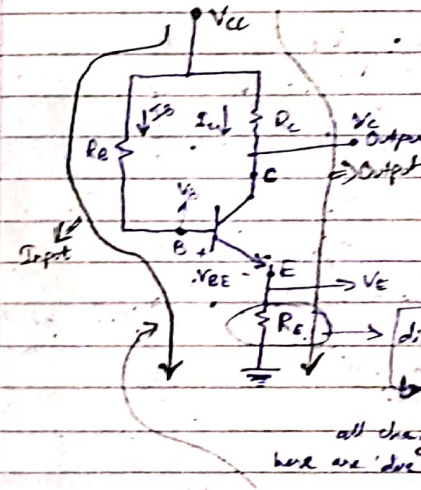 VCC
IB
IC
RC
VC
Output
RB
⇒ Output
C
VB
Input
B +
VBE -
E
VE
RE
di
all cha
here are 'due